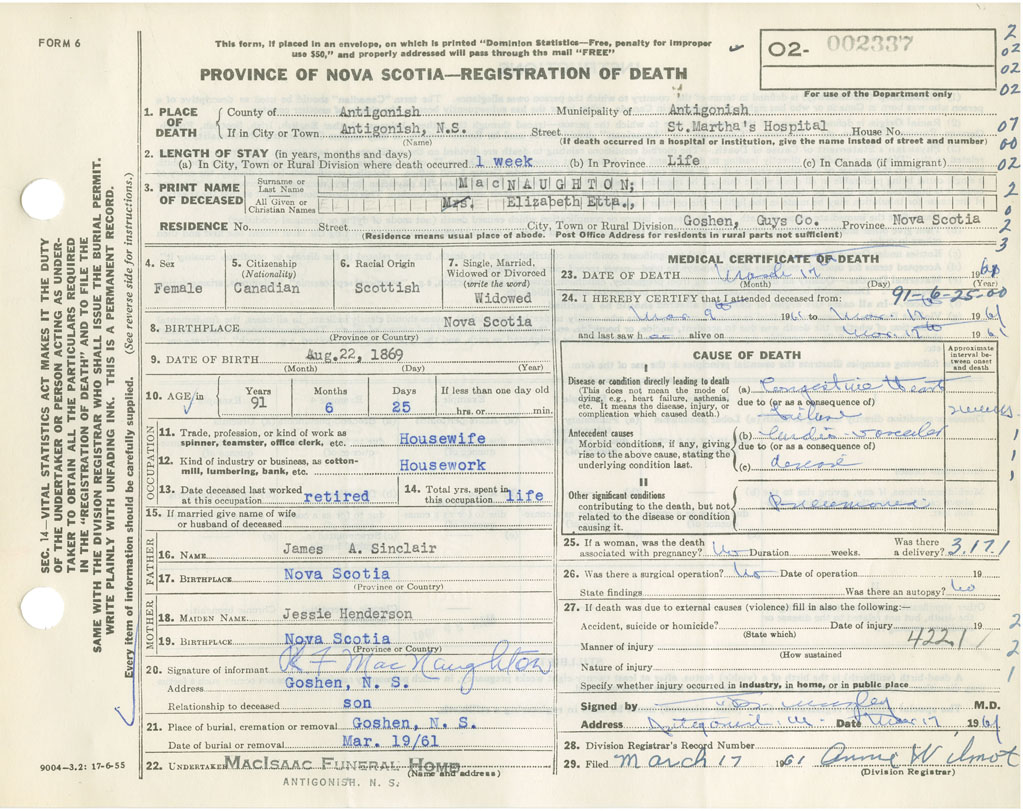 FORM 6
This form, if placed in an envelope, on which is printed "Dominion Statistics—Free, penalty for improper
use $50," and properly addressed will pass through the mail "FREE"
O2- 002337
For use of the Department only
PROVINCE OF NOVA SCOTIA—REGISTRATION OF DEATH
1. PLACE OF DEATH County of Antigonish Municipality of Antigonish
If in City or Town Antigonish, N.S. Street St.Martha's Hospital House No.
(Name) (If death occurred in a hospital or institution, give the name instead of street and number)
2. LENGTH OF STAY (in years, months and days)
(a) In City, Town or Rural Division where death occurred 1 week (b) In Province Life (c) In Canada (if immigrant)
3. PRINT NAME OF DECEASED Surname or Last Name MacNAUGHTON;
All Given or Christian Names Mrs. Elizabeth Etta.,
RESIDENCE No. Street City, Town or Rural Division Goshen, Guys Co. Province Nova Scotia
(Residence means usual place of abode. Post Office Address for residents in rural parts not sufficient)
4. Sex Female
5. Citizenship (Nationality) Canadian
6. Racial Origin Scottish
7. Single, Married, Widowed or Divorced (write the word) Widowed
8. BIRTHPLACE Nova Scotia
(Province or Country)
9. DATE OF BIRTH Aug.22, 1869
(Month) (Day) (Year)
10. AGE in Years 91 Months 6 Days 25 If less than one day old hrs. or min.
OCCUPATION
11. Trade, profession, or kind of work as spinner, teamster, office clerk, etc. Housewife
12. Kind of industry or business, as cotton-mill, lumbering, bank, etc. Housework
13. Date deceased last worked at this occupation retired
14. Total yrs. spent in this occupation life
15. If married give name of wife or husband of deceased
FATHER
16. NAME James A. Sinclair
17. BIRTHPLACE Nova Scotia
(Province or Country)
MOTHER
18. MAIDEN NAME Jessie Henderson
19. BIRTHPLACE Nova Scotia
(Province or Country)
20. Signature of informant R F MacNaughton
Address Goshen, N. S.
Relationship to deceased son
21. Place of burial, cremation or removal Goshen, N. S.
Date of burial or removal Mar. 19/61
22. UNDERTAKER MacIsaac Funeral Home
(Name and address)
ANTIGONISH. N. S.
MEDICAL CERTIFICATE OF DEATH
23. DATE OF DEATH March 17 1961
(Month) (Day) (Year)
24. I HEREBY CERTIFY that I attended deceased from: 91-6-25-00
Mar 9th 1961 to Mar. 17 1961
and last saw h alive on Mar 17th 1961
CAUSE OF DEATH
Approximate interval between onset and death
I
Disease or condition directly leading to death
(This does not mean the mode of dying, e.g., heart failure, asthenia, etc. It means the disease, injury, or complication which caused death.)
(a) Congestive Heart
due to (or as a consequence of)
Failure 2 weeks
Antecedent causes
Morbid conditions, if any, giving rise to the above cause, stating the underlying condition last.
(b) Cardio-vascular
due to (or as a consequence of)
(c) disease
II
Other significant conditions contributing to the death, but not related to the disease or condition causing it.
Pneumonia
25. If a woman, was the death associated with pregnancy? No Duration weeks. Was there a delivery? 3.17.1
26. Was there a surgical operation? No Date of operation 19
State findings Was there an autopsy? No
27. If death was due to external causes (violence) fill in also the following:—
Accident, suicide or homicide? Date of injury 19
(State which)
Manner of injury 4221
(How sustained
Nature of injury
Specify whether injury occurred in industry, in home, or in public place
Signed by M.D.
Address Antigonish, N.S. Date Mar 17 1961
28. Division Registrar's Record Number
29. Filed March 17 1961 Anne Wilmot
(Division Registrar)
SEC. 14—VITAL STATISTICS ACT MAKES IT THE DUTY
OF THE UNDERTAKER OR PERSON ACTING AS UNDER-
TAKER TO OBTAIN ALL THE PARTICULARS REQUIRED
IN THE "REGISTRATION OF DEATH" AND TO FILE THE
SAME WITH THE DIVISION REGISTRAR WHO SHALL ISSUE THE BURIAL PERMIT.
WRITE PLAINLY WITH UNFADING INK. THIS IS A PERMANENT RECORD.
Every item of information should be carefully supplied. (See reverse side for instructions.)
9004—3.2: 17-6-55
2
02
02
02
07
00
02
2
0
2
3
1
1
1
2
2
1